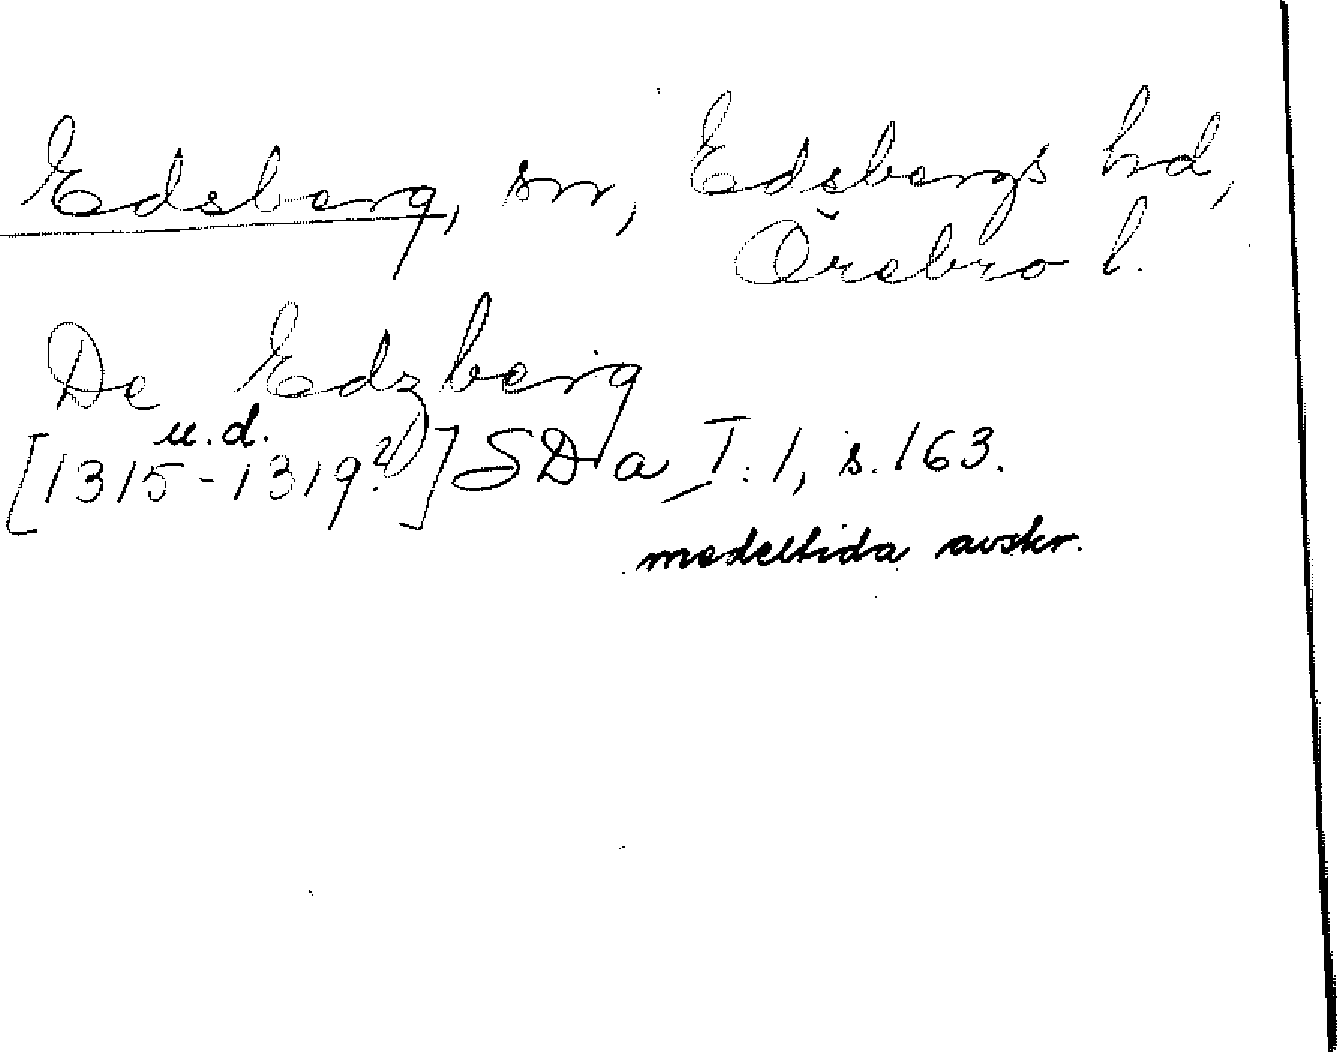 Edsberg, sn, Edsbergs hd,
Örebro l.
De Edzberg
u.d.
[1315-1319?] SDa I:1, s.163.
medeltida avskr.